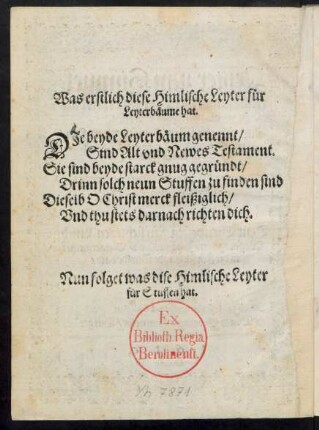 Was erstlich diese Himlische Leyter für
Leyterbäume hat.
DIe beyde Leyterbäum genennt/
Sind Alt vnd Newes Testament.
Sie sind beyde starck gnug gegründt/
Drinn solch neun Stuffen zu finden sind
Dieselb O Christ merck fleißiglich/
Vnd thu stets darnach richten dich.
Nun folget was dise Himlische Leyter
für Stuffen hat.
Ex
Biblioth. Regia
Berolinensi.
Yh 7871